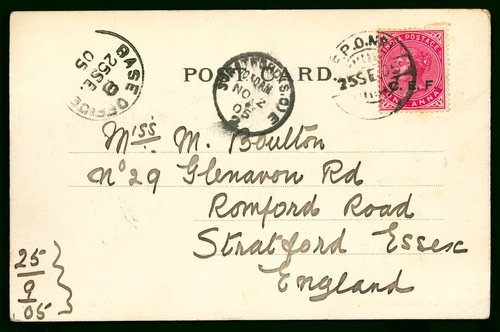 BASE OFFICE
25 SE
05
POST CARD.
NO 2
05
F.P.O. No
25 SE 05
INDIA POSTAGE
C. E. F
ANNA
Miss M. Boulton
No 29 Glenavon Rd
Romford Road
Stratford Essex
England
25
9
05